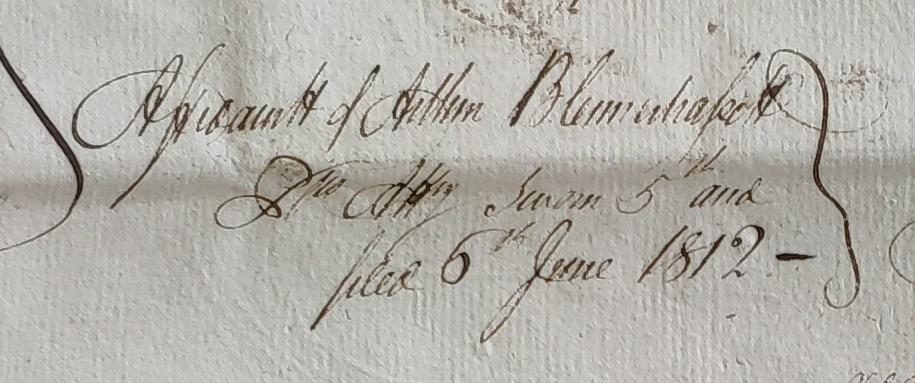 Affidavitt of Arthur Blennerhassett
Plts Atty Sworn 5th and
filed 6th June 1812 -